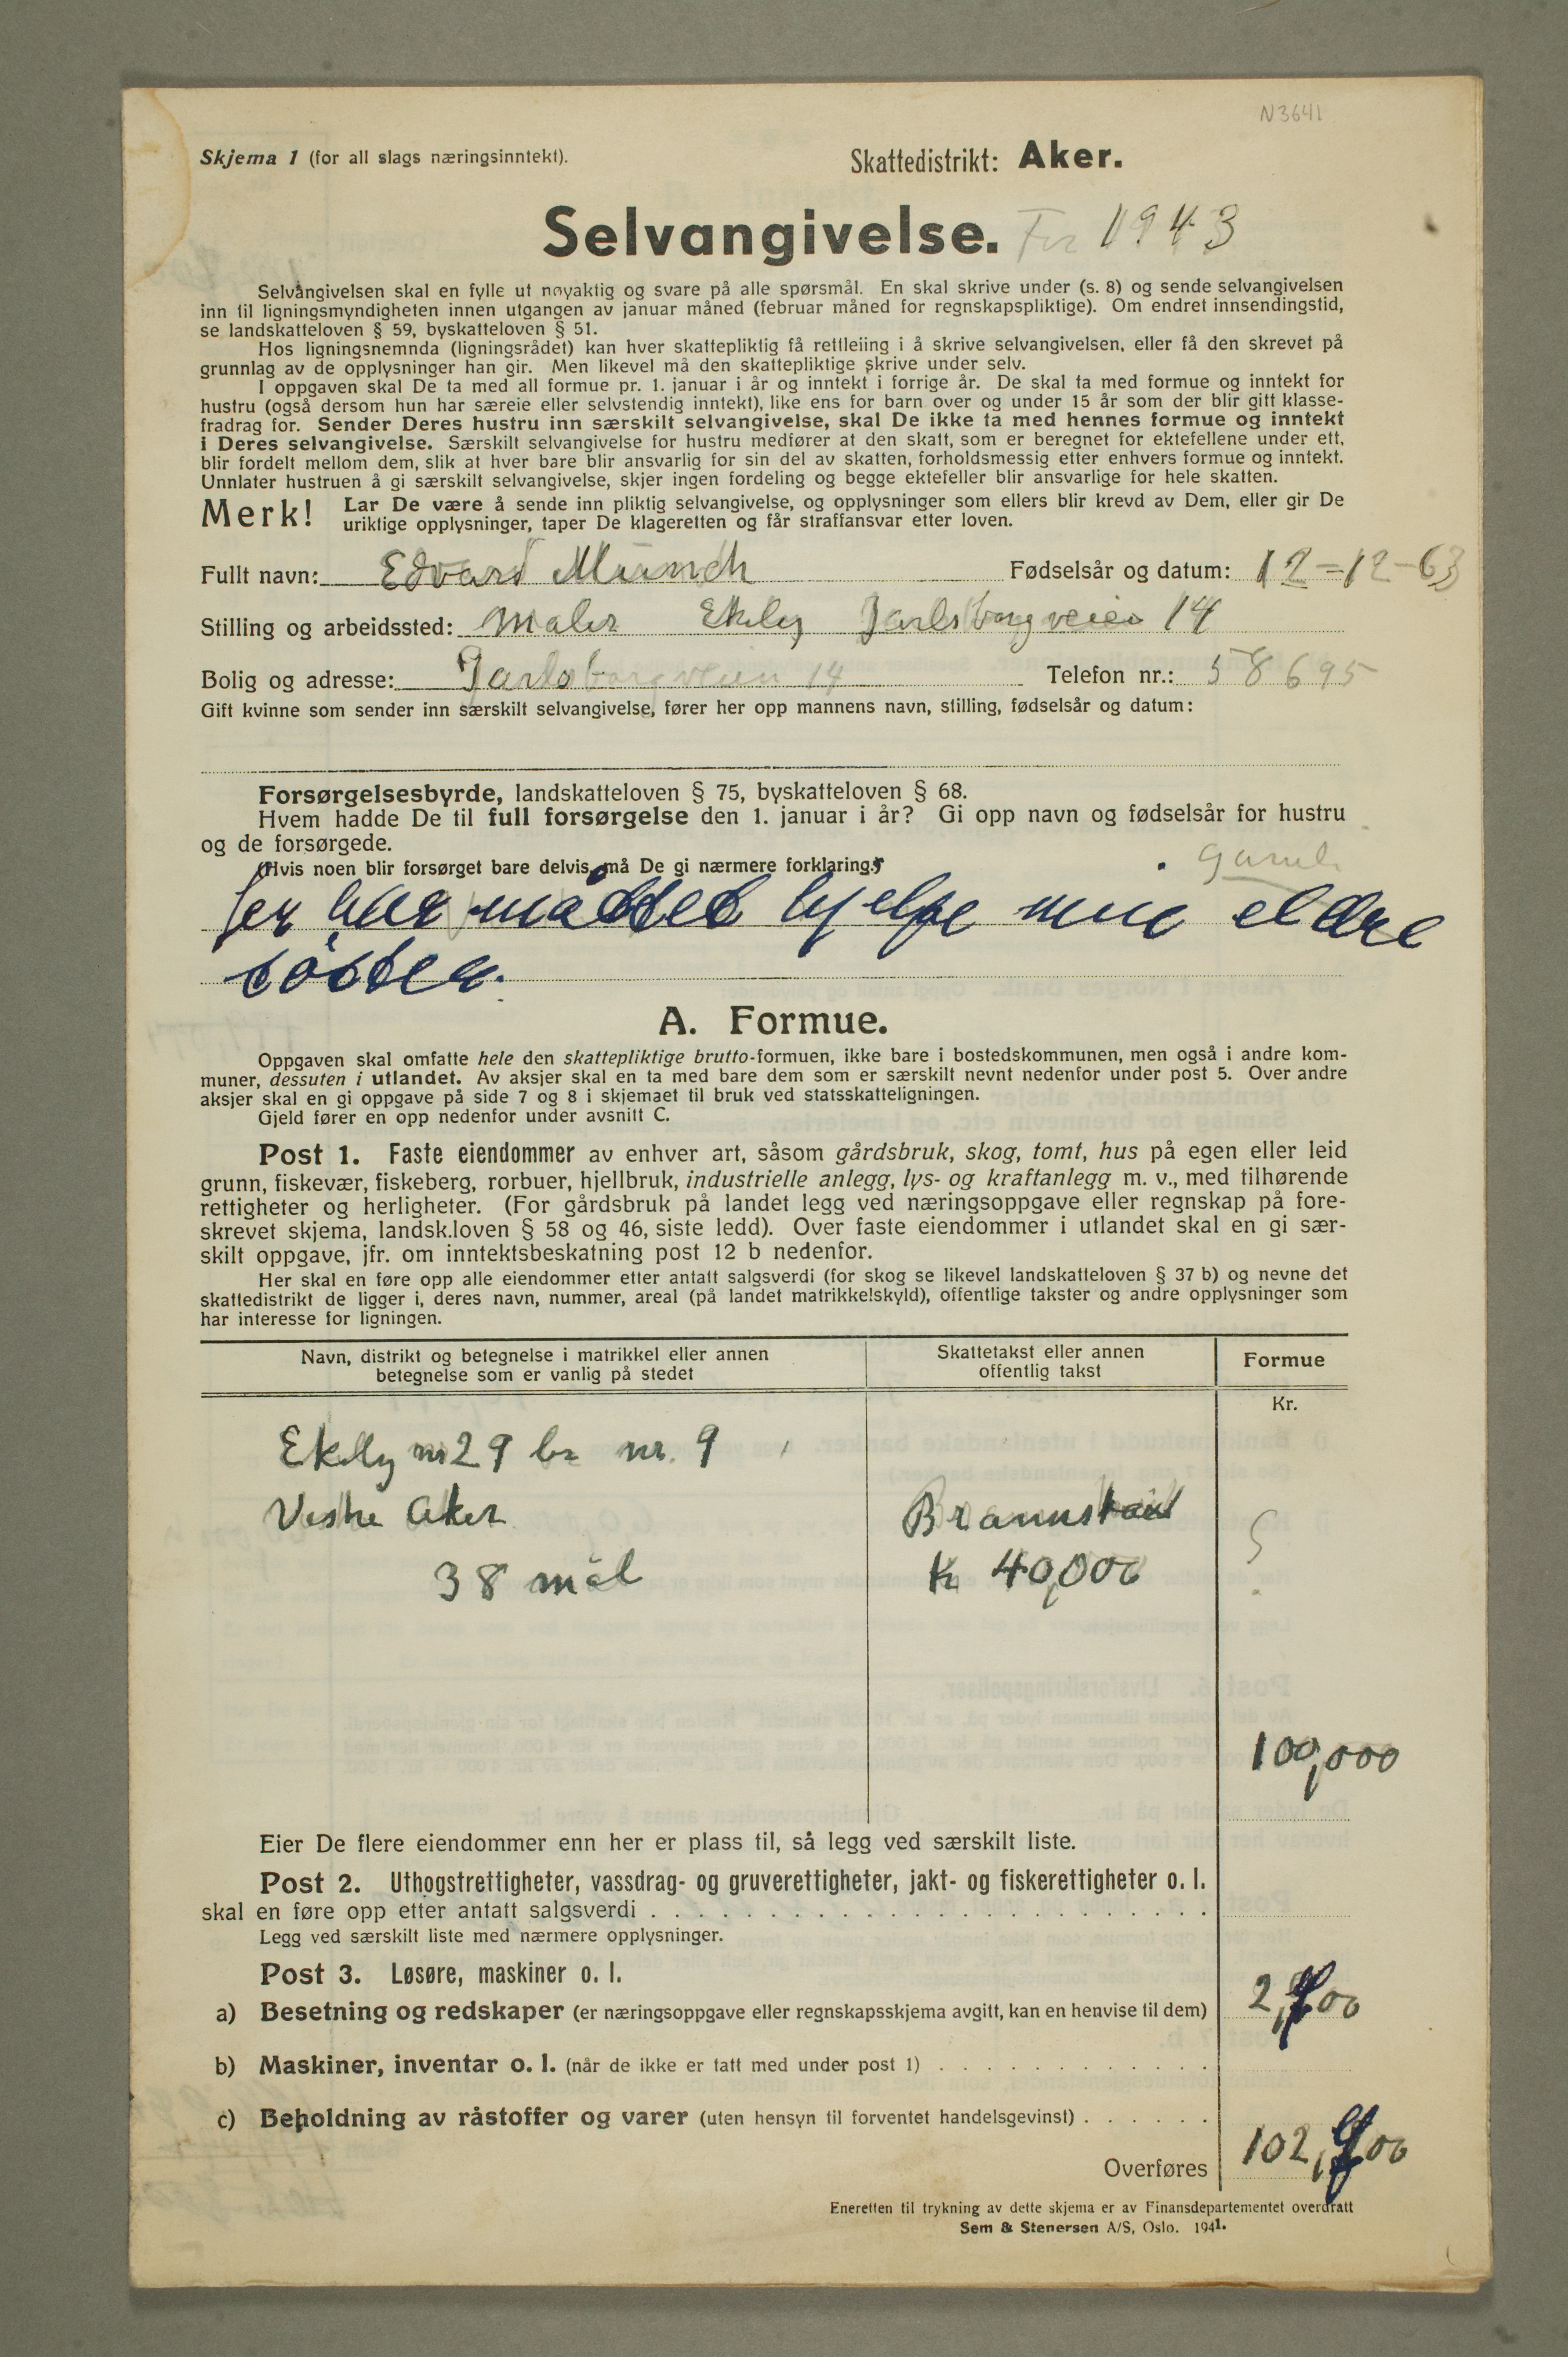 N3641
Skjema 1 (for all slags næringsinntekt).
Skattedistrikt: Aker.
Selvangivelse. For 1943
Selvångivelsen skal en fylle ut nøyaktig og svare på alle spørsmål. En skal skrive under (s. 8) og sende selvangivelsen
inn til ligningsmyndigheten innen utgangen av januar måned (februar måned for regnskapspliktige). Om endret innsendingstid,
se landskatteloven § 59, byskatteloven § 51.
Hos ligningsnemnda (ligningsrådet) kan hver skattepliktig få rettleiing i å skrive selvangivelsen, eller få den skrevet på
grunnlag av de opplysninger han gir. Men likevel må den skattepliktige skrive under selv.
I oppgaven skal De ta med all formue pr. 1. januar i år og inntekt i forrige år. De skal ta med formue og inntekt for
hustru (også dersom hun har særeie eller selvstendig inntekt), like ens for barn over og under 15 år som der blir gitt klasse-
fradrag for. Sender Deres hustru inn særskilt selvangivelse, skal De ikke ta med hennes formue og inntekt
i Deres selvangivelse. Særskilt selvangivelse for hustru medfører at den skatt, som er beregnet for ektefellene under ett,
blir fordelt mellom dem, slik at hver bare blir ansvarlig for sin del av skatten, forholdsmessig etter enhvers formue og inntekt.
Unnlater hustruen å gi særskilt selvangivelse, skjer ingen fordeling og begge ektefeller blir ansvarlige for hele skatten.
Merk! Lar De være å sende inn pliktig selvangivelse, og opplysninger som ellers blir krevd av Dem, eller gir De
uriktige opplysninger, taper De klageretten og får straffansvar etter loven.
Fullt navn: Edvard Munch Fødselsår og datum: 12-12-63
Stilling og arbeidssted: Maler Ekely Jarlsborgveien 14
Bolig og adresse: Jarlsborgveien 14 Telefon nr.: 58695
Gift kvinne som sender inn særskilt selvangivelse, fører her opp mannens navn, stilling, fødselsår og datum:
Forsørgelsesbyrde, landskatteloven § 75, byskatteloven § 68.
Hvem hadde De til full forsørgelse den 1. januar i år? Gi opp navn og fødselsår for hustru
og de forsørgede.
(Hvis noen blir forsørget bare delvis, må De gi nærmere forklaring.)
Jeg har måttet hjelpe min eldre
søster.
A. Formue.
Oppgaven skal omfatte hele den skattepliktige brutto-formuen, ikke bare i bostedskommunen, men også i andre kom-
muner, dessuten i utlandet. Av aksjer skal en ta med bare dem som er særskilt nevnt nedenfor under post 5. Over andre
aksjer skal en gi oppgave på side 7 og 8 i skjemaet til bruk ved statsskatteligningen.
Gjeld fører en opp nedenfor under avsnitt C.
Post 1. Faste eiendommer av enhver art, såsom gårdsbruk, skog, tomt, hus på egen eller leid
grunn, fiskevær, fiskeberg, rorbuer, hjellbruk, industrielle anlegg, lys- og kraftanlegg m. v., med tilhørende
rettigheter og herligheter. (For gårdsbruk på landet legg ved næringsoppgave eller regnskap på fore-
skrevet skjema, landsk.loven § 58 og 46, siste ledd). Over faste eiendommer i utlandet skal en gi sær-
skilt oppgave, jfr. om inntektsbeskatning post 12 b nedenfor.
Her skal en føre opp alle eiendommer etter antatt salgsverdi (for skog se likevel landskatteloven § 37 b) og nevne det
skattedistrikt de ligger i, deres navn, nummer, areal (på landet matrikkelskyld), offentlige takster og andre opplysninger som
har interesse for ligningen.
Navn, distrikt og betegnelse i matrikkel eller annen
betegnelse som er vanlig på stedet
Skattetakst eller annen
offentlig takst
Formue
Kr.
Ekely nr 29 br nr. 9
Vestre Aker
38 mål
Kr 40,000
100,000
Eier De flere eiendommer enn her er plass til, så legg ved særskilt liste.
Post 2. Uthogstrettigheter, vassdrag- og gruverettigheter, jakt- og fiskerettigheter o. l.
skal en føre opp etter antatt salgsverdi . . . . . . . . . . . . . . . . . . . . . . . .
Legg ved særskilt liste med nærmere opplysninger.
Post 3. Løsøre, maskiner o. l.
a) Besetning og redskaper (er næringsoppgave eller regnskapsskjema avgitt, kan en henvise til dem)
b) Maskiner, inventar o. l. (når de ikke er tatt med under post 1) . . . . . . . . . . . .
c) Beholdning av råstoffer og varer (uten hensyn til forventet handelsgevinst) . . . . . .
Overføres
Eneretten til trykning av dette skjema er av Finansdepartementet overdratt
Sem & Stenersen A/S, Oslo. 1941.